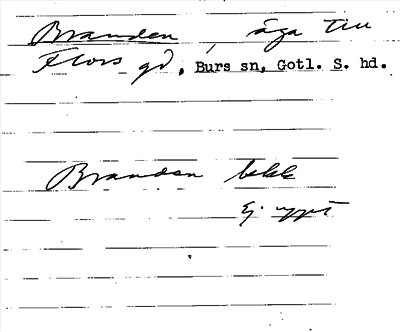 Branden, äga till
Flors gd, Burs sn, Gotl. S. hd.
Branden bekk
Ej uppt